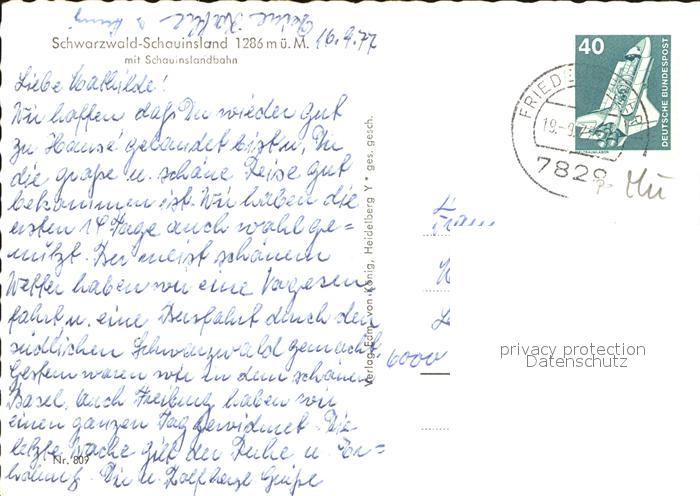 Schwarzwald-Schauinsland 1286 m ü. M.
mit Schauinslandbahn
16.9.77
Liebe Mathilde!
Wir hoffen daß Du wieder gut
zu Hause gelandet bist u. Dir
die große u. schöne Reise gut
bekommen ist. Wir haben die
ersten 14 Tage auch wohl ge=
nützt. Bei meist schönem
Wetter haben wir eine Vogesen
fahrt u. eine Busfahrt durch den
südlichen Schwarzwald gemacht.
Gestern waren wir in dem schönen
Basel, auch Freiburg haben wir
einen ganzen Tag gewidmet. Die
letzte Woche gilt der Ruhe u. Er=
holung. Dir u. Rolf herzl. Grüße
Nr. 809
Verlag Edm. von König, Heidelberg Y • ges. gesch.
40
DEUTSCHE BUNDESPOST
7829
Frau
6000
privacy protection
Datenschutz